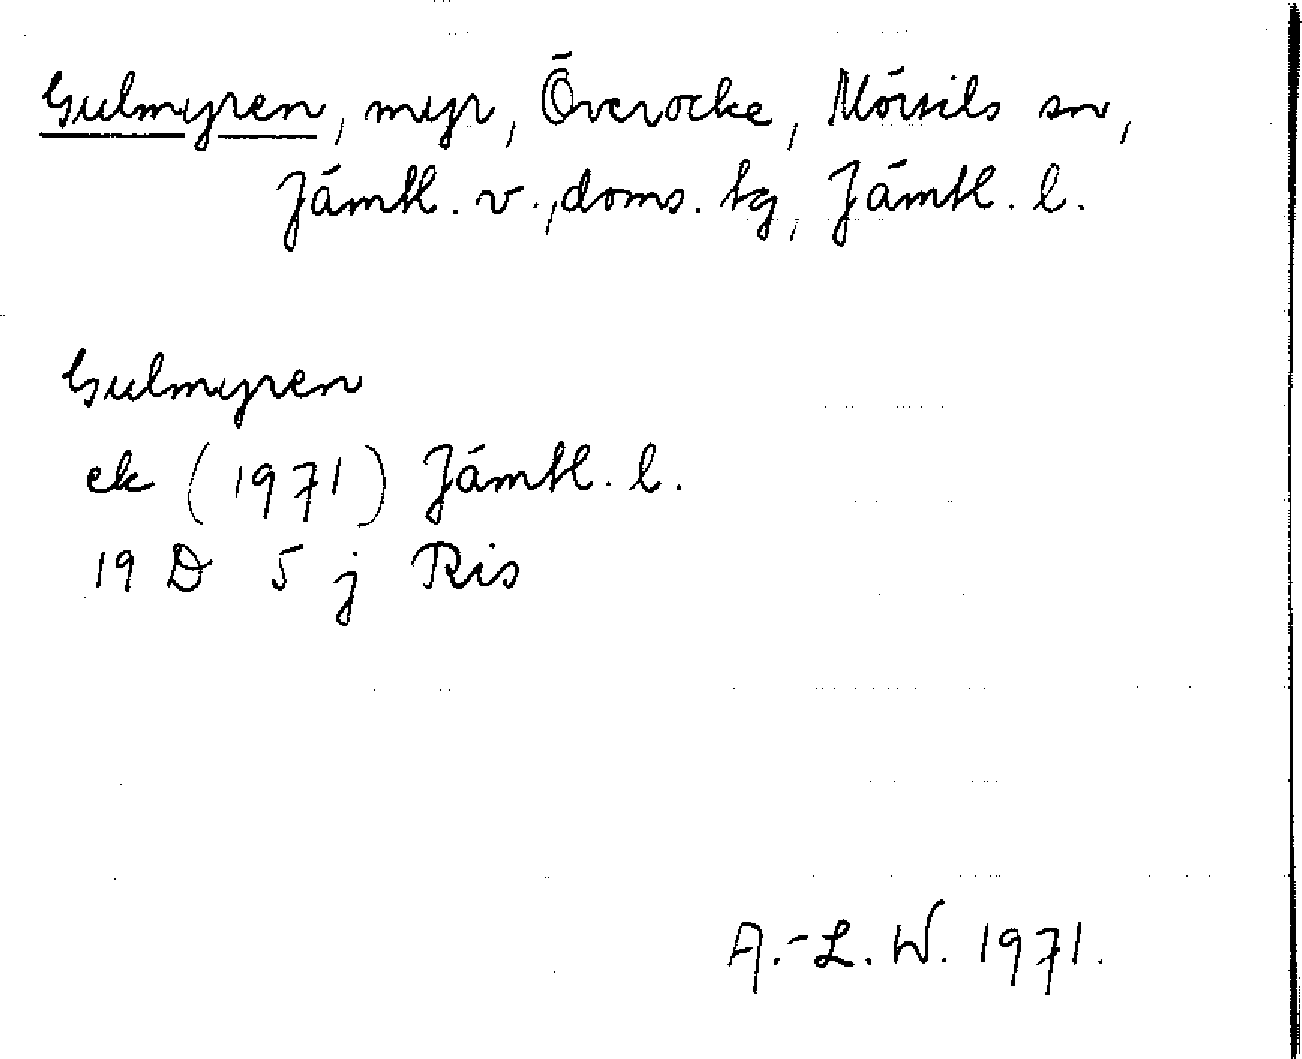 Gulmyren, myr, Överocke, Mörsils sn,
Jämtl. v., doms. tg, Jämtl. l.
Gulmyren
ek (1971) Jämtl. l.
19 D 5 j Ris
A.-L. W. 1971.